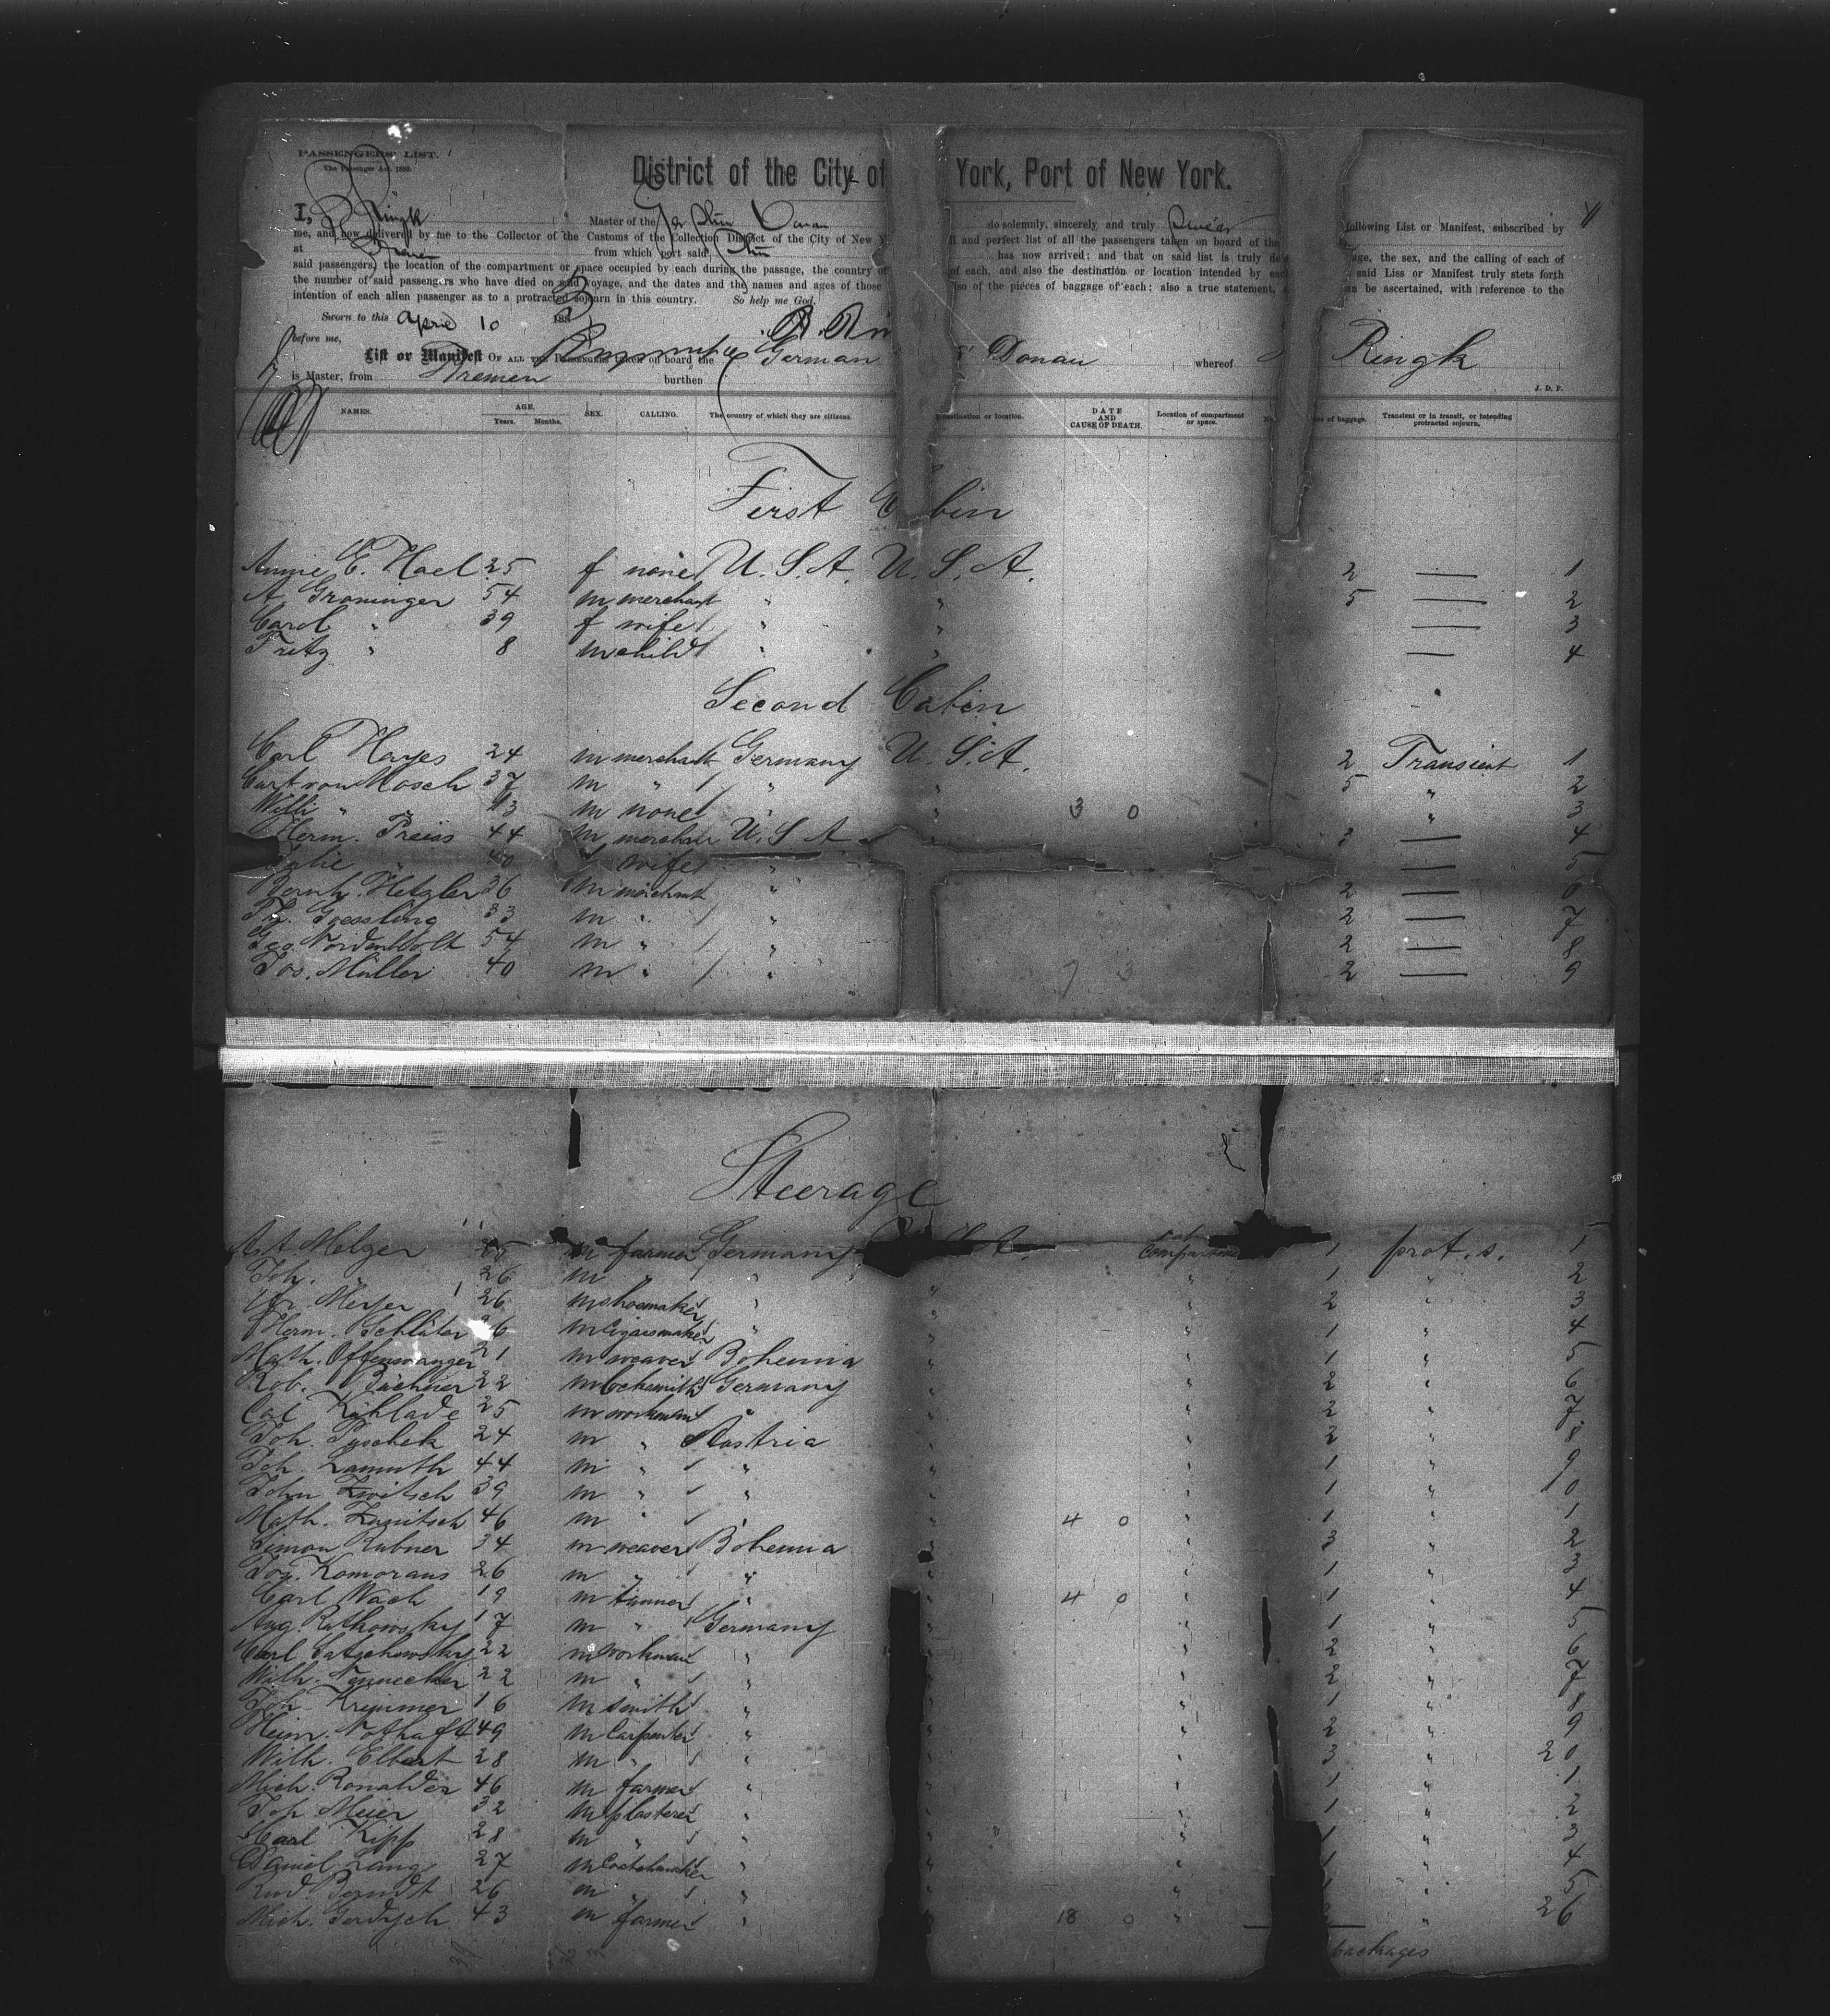 PASSENGERS' LIST.
The Passenger Act, 1882.
District of the City of York, Port of New York.
I, Ringk Master of the Donau do solemnly, sincerely and truly following List or Manifest, subscribed by
me, and now delivered by me to the Collector of the Customs of the Collection District of the City of New Y ll and perfect list of all the passengers taken on board of the
at Bremen from which port said has now arrived; and that on said list is truly de age, the sex, and the calling of each of
said passengers, the location of the compartment or space occupied by each during the passage, the country of of each, and also the destination or location intended by each said Liss or Manifest truly stets forth
the number of said passengers who have died on said voyage, and the dates and the names and ages of those lso of the pieces of baggage of each; also a true statement, an be ascertained, with reference to the
intention of each alien passenger as to a protracted sojourn in this country. So help me God.
Sworn to this April 10 188
before me,
List or Manifest OF ALL THE PASSENGERS taken on board the German Donau whereof Ringk
is Master, from Bremen burthen
J. D. P.
NAMES. AGE. Years. Months. SEX. CALLING. The country of which they are citizens. destination or location. DATE AND CAUSE OF DEATH. Location of compartment or space. No. es of baggage. Transient or in transit, or intending protracted sojourn.
First C bin
Annie E. Hael 25 f none U. S. A. U. S. A. 2 — 1
A Groninger 54 m merchant " " 5 — 2
Carol " 39 f wife " " — 3
Fritz " 8 m child " " — 4
Second Cabin
Carl Hayes 24 m merchant Germany U. S. A. 2 Transient 1
Curt von Mosch 37 m " " " 5 " 2
Willi " " 13 m none " 3 0 " 3
Herm. Preiss 44 m merchant U. S. A 3 — 4
" 40 wife " — 5
Bernh. Hetzler 36 m merchant " 2 — 6
Goessling 33 m " " 2 — 7
Geo. Nordenholt 54 m " " 2 — 8
Jos. Müller 40 m " " 7 3 2 — 9
Steerage
Ant Melzer m farmer Germany Compartment 1 prot. s. 1
Joh. " 26 m " " " " 1 " 2
Meyer 26 m shoemaker " " " 2 " 3
Herm. Schlüter 6 m Cigarsmaker " " " 1 " 4
Math. Offenwanger 21 m weaver Bohemia " " 1 " 5
Rob. Büchner 22 m locksmith Germany " " 2 " 6
Cal Kühlade 25 m workman " " " 2 " 7
Joh. Pyschek 24 m " Austria " " 2 " 8
Joh. Lamuth 44 m " " " " 1 " 9
John Zwitsch 39 m " " " " 1 " 10
Math. Zunitsch 46 m " " " 4 0 " 1 " 1
Simon Rubner 34 m weaver Bohemia " " 3 " 2
Jos. Komorans 26 m " " " " 1 " 3
Carl Wach 19 m tanner " " 4 0 " 1 " 4
Aug. Rathowsky 17 m " Germany " " 1 " 5
Carl Satschowsky 22 m workman " " " 2 " 6
Wilh. 22 m " " " " 2 " 7
Joh. Krimmer 16 m smith " " " 1 " 8
Heinr. Nothaft 49 m Carpenter " " " 2 " 9
Wilh. Elbert 28 m " " " " 3 " 20
Mich. Ronalder 46 m farmer " " " 1 " 1
Joh Meier 32 m plasterer " " " 1 " 2
Carl Kipp 28 m " " " " 1 " 3
Daniel Lang 27 m " " " 1 " 4
Rud Berndt 26 m " " " " " 5
Mich. Gerdysch 43 m farmer " " 18 0 " " 26
packages